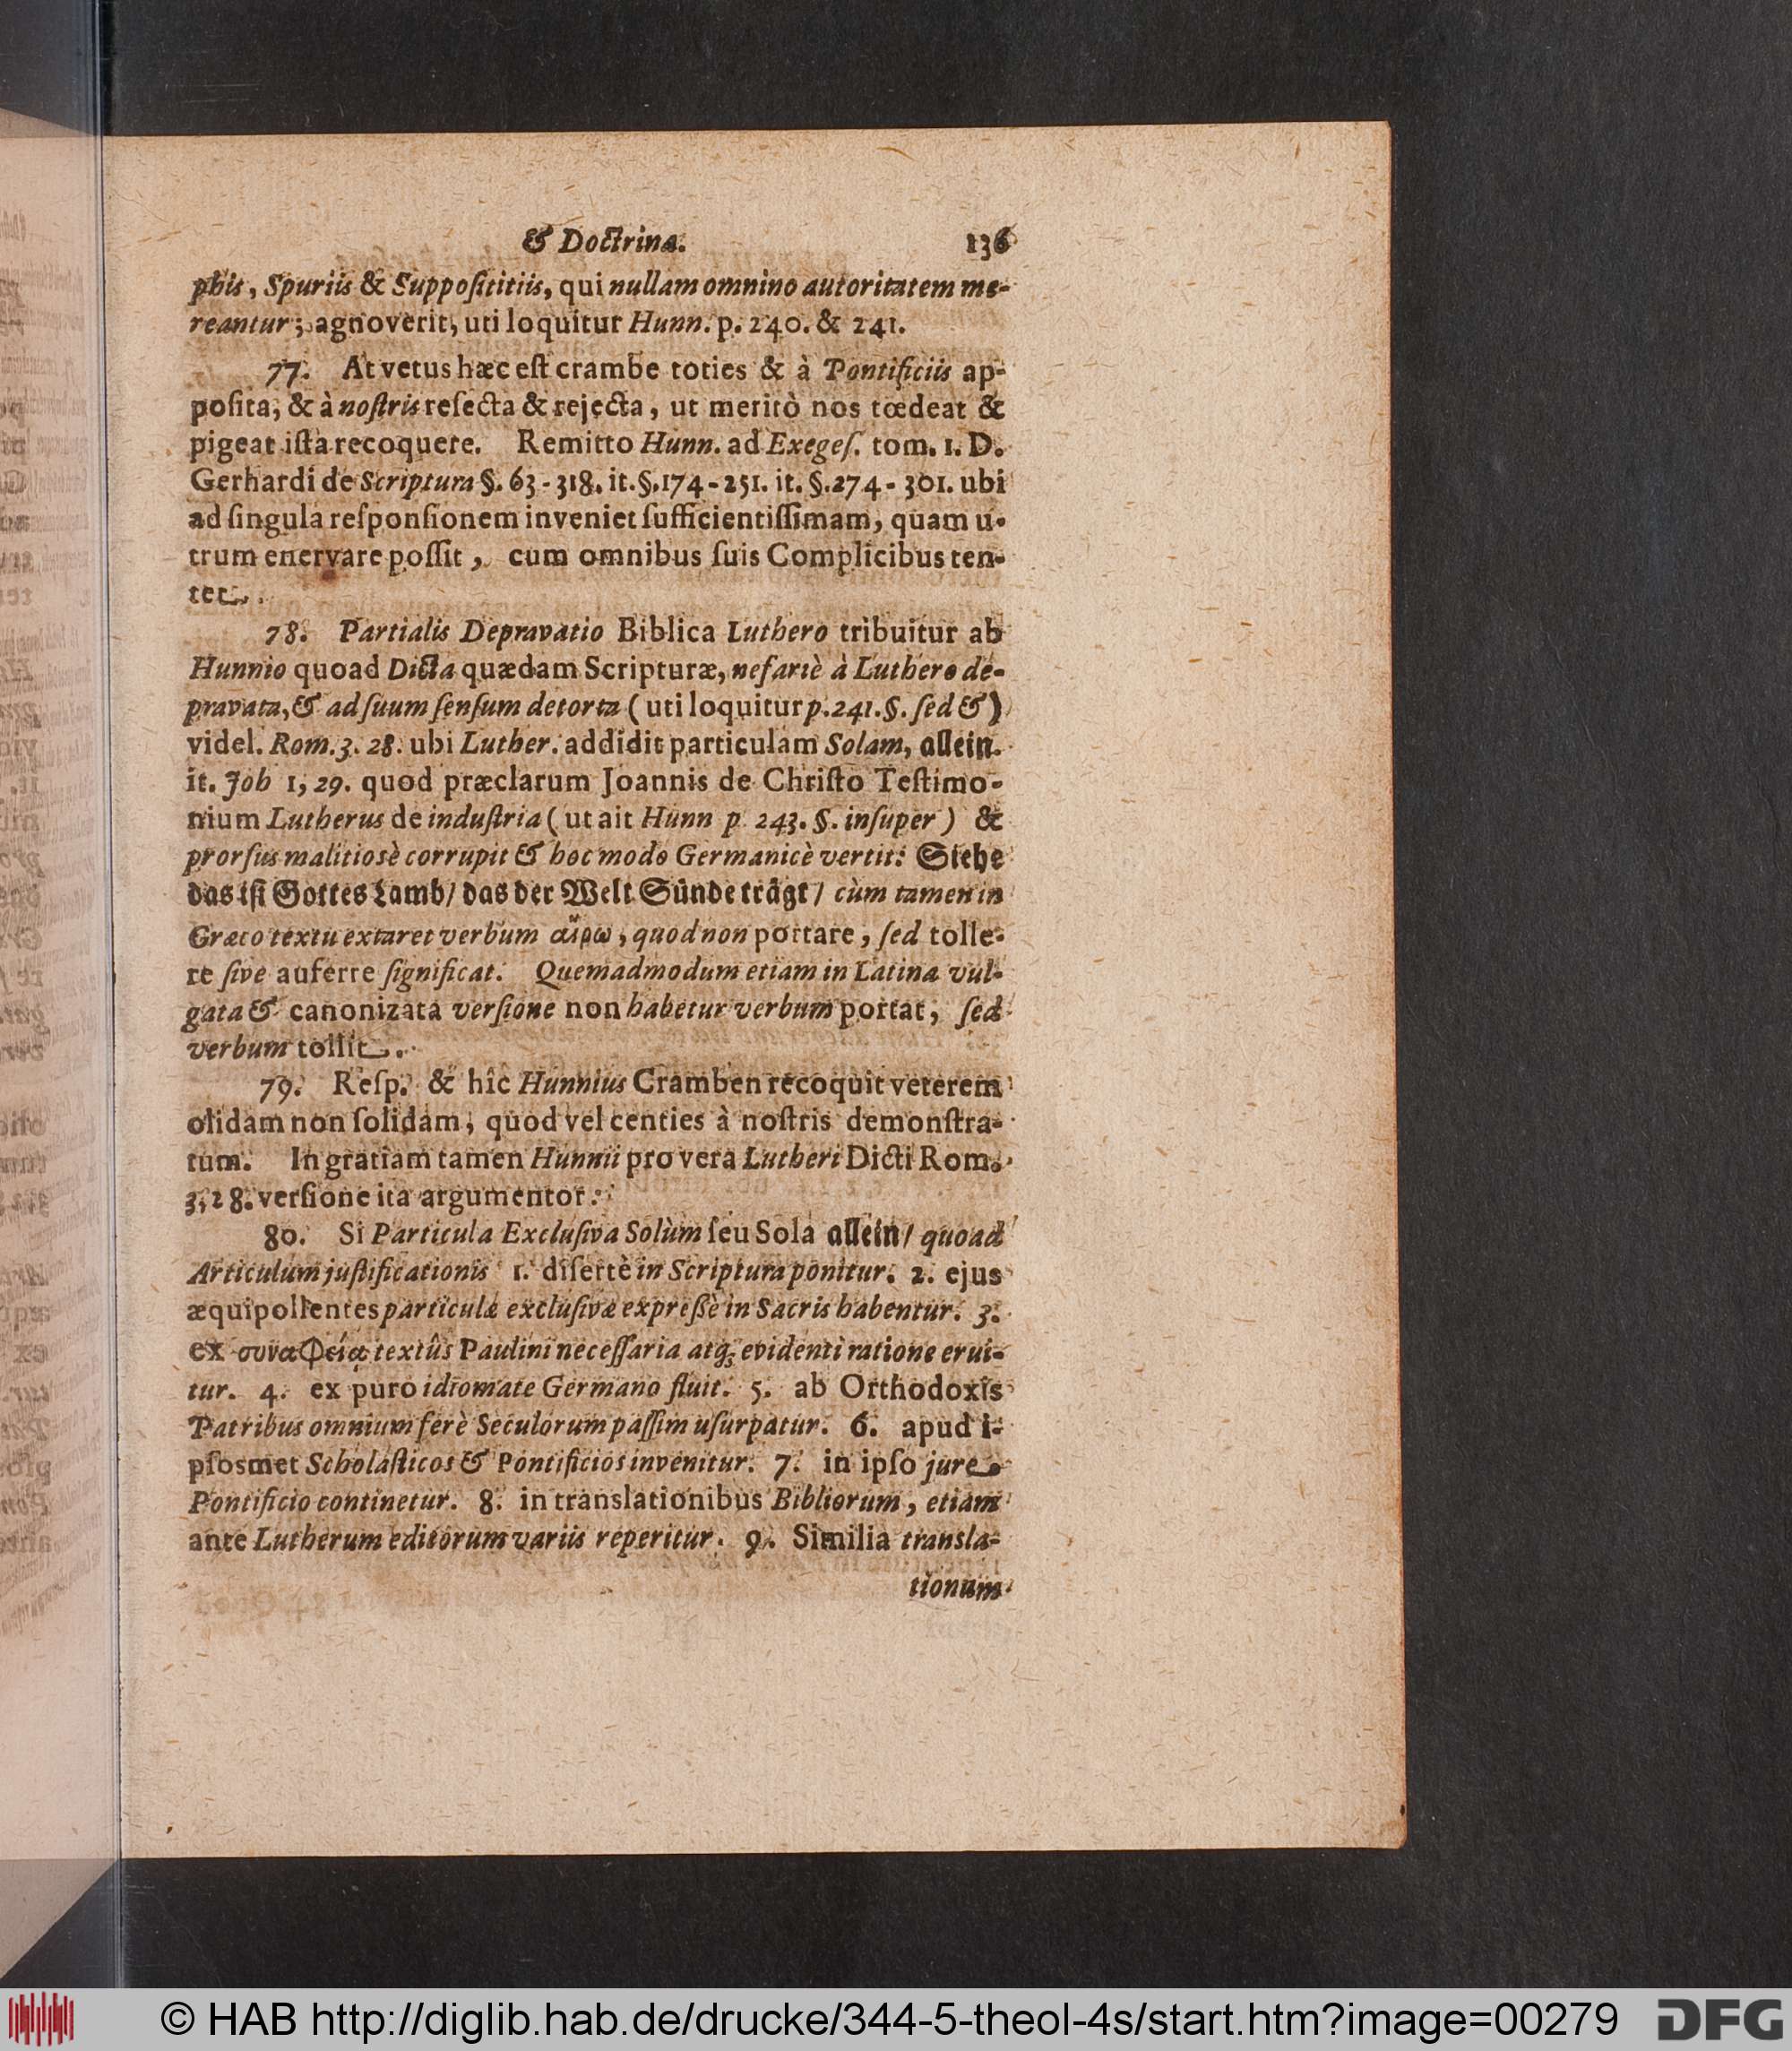 & Doctrina. 136
phis, Spuriis & Supposititiis, qui nullam omnino autoritatem me-
reantur; agnoverit, uti loquitur Hunn. p. 240. & 241.
77. At vetus hæc eſt crambe toties & à Pontificiis ap-
poſita, & à noſtris reſecta & rejecta, ut meritò nos tœdeat &
pigeat iſta recoquere. Remitto Hunn. ad Exegeſ. tom. 1. D.
Gerhardi de Scriptura §. 63-318. it. §. 174-251. it. §. 274-301. ubi
ad ſingula reſponſionem inveniet ſufficientiſſimam, quam u-
trum enervare poſſit, cum omnibus ſuis Complicibus ten-
tet.
78. Partialis Depravatio Biblica Luthero tribuitur ab
Hunnio quoad Dicta quædam Scripturæ, nefariè à Luthero de-
pravata, & ad ſuum ſenſum detorta (uti loquitur p. 241. §. ſed &)
videl. Rom. 3. 28. ubi Luther. addidit particulam Solam, allein.
it. Job 1, 29. quod præclarum Joannis de Chriſto Teſtimo-
nium Lutherus de induſtria (ut ait Hunn p. 243. §. inſuper) &
prorſus malitiosè corrupit & hoc modo Germanicè vertit: Siehe
das iſt Gottes Lamb/ das der Welt Sünde trägt/ cùm tamen in
Græco textu extaret verbum αἴρω, quod non portare, ſed tolle-
re ſive auferre ſignificat. Quemadmodum etiam in Latina vul-
gata & canonizata verſione non habetur verbum portat, ſed
verbum tollit.
79. Reſp. & hîc Hunnius Cramben recoquit veterem
olidam non ſolidam, quod vel centies à noſtris demonſtra-
tum. In gratiam tamen Hunnii pro vera Lutheri Dicti Rom.
3, 28. verſione ita argumentor:
80. Si Particula Excluſiva Solùm ſeu Sola allein/ quoad
Articulum juſtificationis 1. diſertè in Scriptura ponitur. 2. ejus
æquipollentes particulæ excluſivæ expreßè in Sacris habentur. 3.
ex συναφείᾳ textûs Paulini neceſſaria atq; evidenti ratione erui-
tur. 4. ex puro idiomate Germano fluit. 5. ab Orthodoxis
Patribus omnium ferè Seculorum paſſim uſurpatur. 6. apud i-
pſosmet Scholaſticos & Pontificios invenitur. 7. in ipſo jure
Pontificio continetur. 8. in translationibus Bibliorum, etiam
ante Lutherum editorum variis reperitur. 9. Similia transla-
tionum
© HAB http://diglib.hab.de/drucke/344-5-theol-4s/start.htm?image=00279 DFG